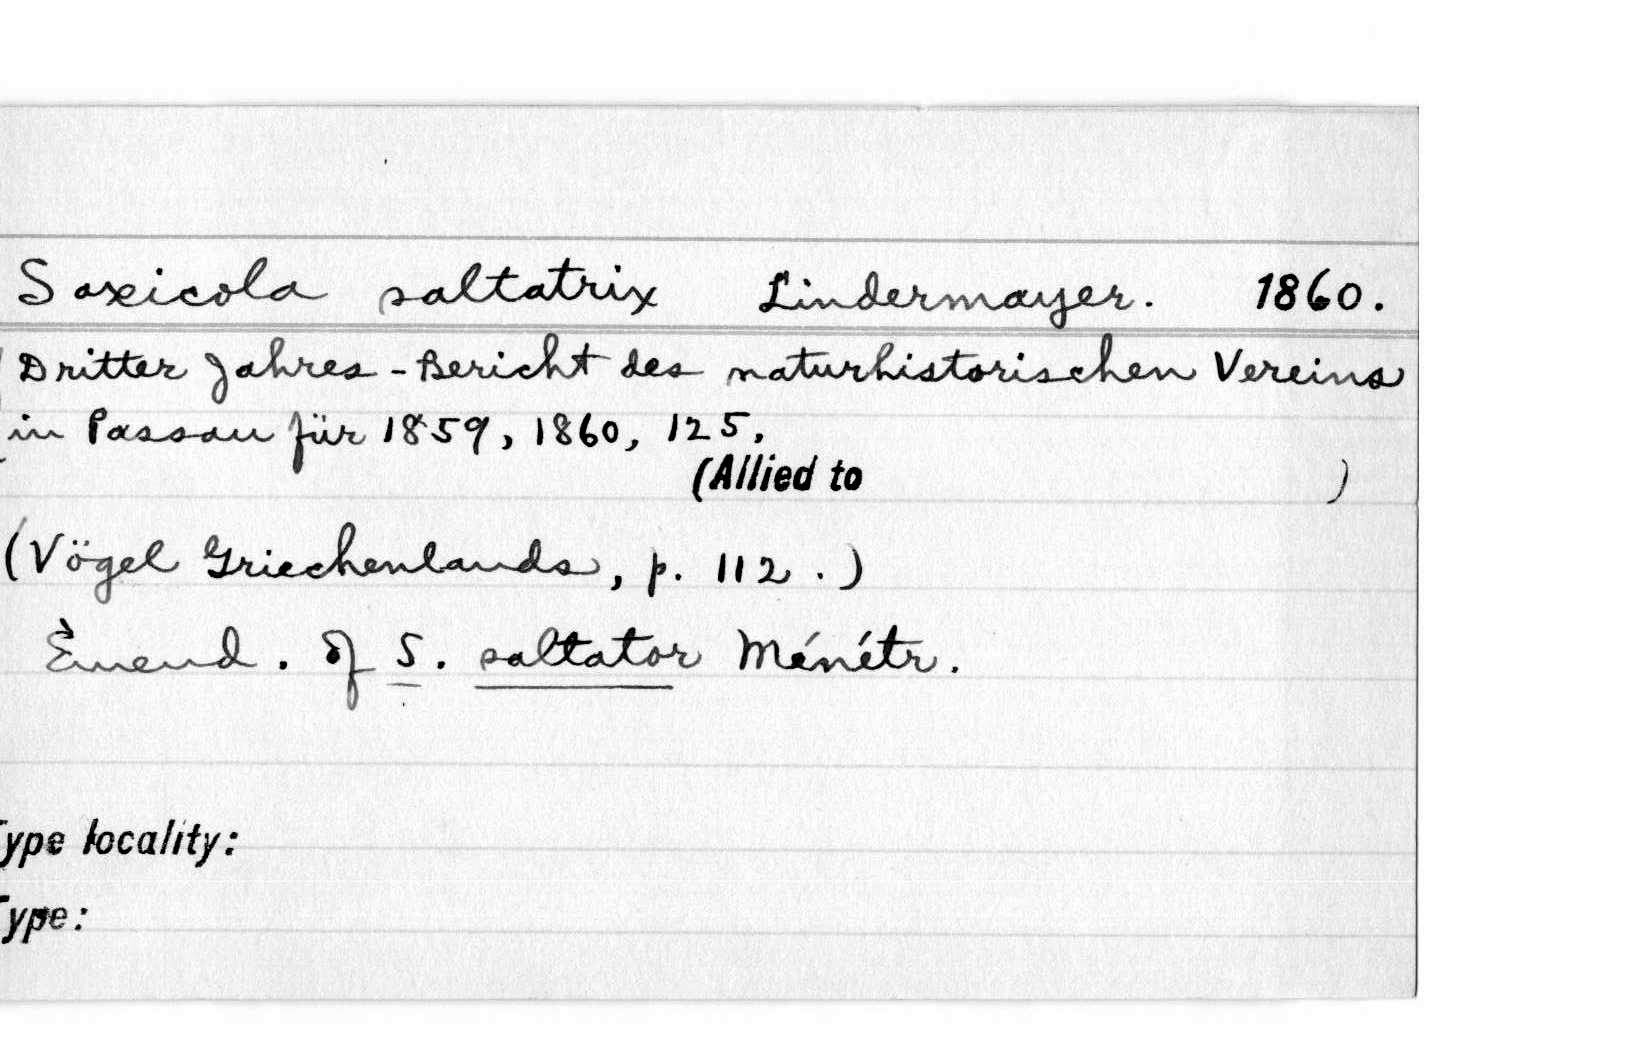 Saxicola saltatrix Lindermayer. 1860.
Dritter Jahres-Bericht des naturhistorischen Vereins
in Passau für 1859, 1860, 125.
(Allied to )
(Vögel Griechenlands, p. 112.)
Emend. of S. saltator Ménétr.
Type locality:
Type: